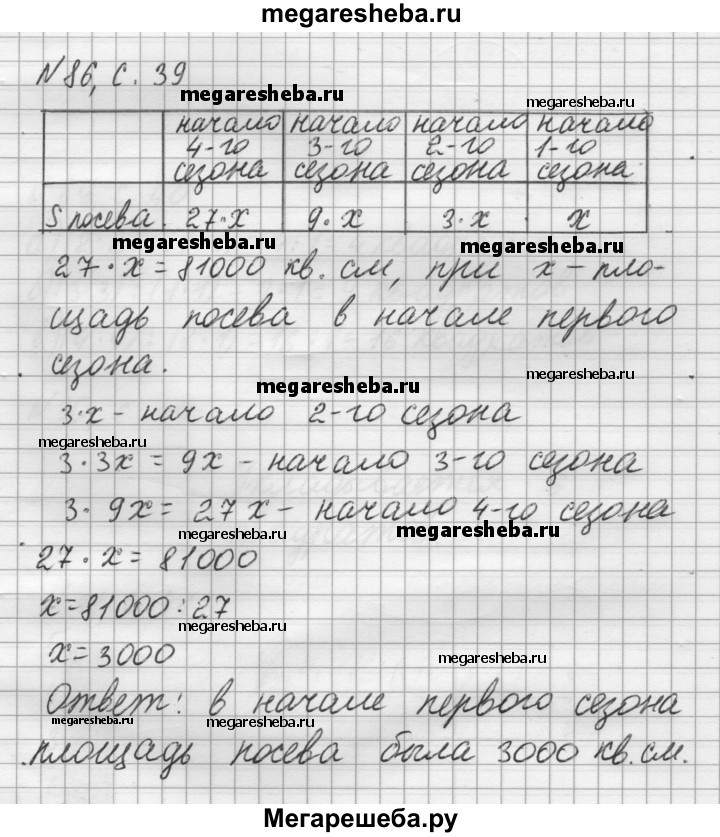 megaresheba.ru
N86, с. 39
megaresheba.ru
megaresheba.ru
начало начало начало начало
4-го 3-го 2-го 1-го
сезона сезона сезона сезона
S посева 27·x 9·x 3·x x
megaresheba.ru
megaresheba.ru
27·x = 81000 кв. см, при x - пло-
щадь посева в начале первого
сезона.
megaresheba.ru
megaresheba.ru
3·x - начало 2-го сезона
megaresheba.ru
3·3x = 9x - начало 3-го сезона
3·9x = 27x - начало 4-го сезона
megaresheba.ru
megaresheba.ru
27·x = 81000
x=81000:27
megaresheba.ru
x=3000
megaresheba.ru
Ответ: в начале первого сезона
megaresheba.ru
megaresheba.ru
площадь посева была 3000 кв.см.
Мегарешеба.ру